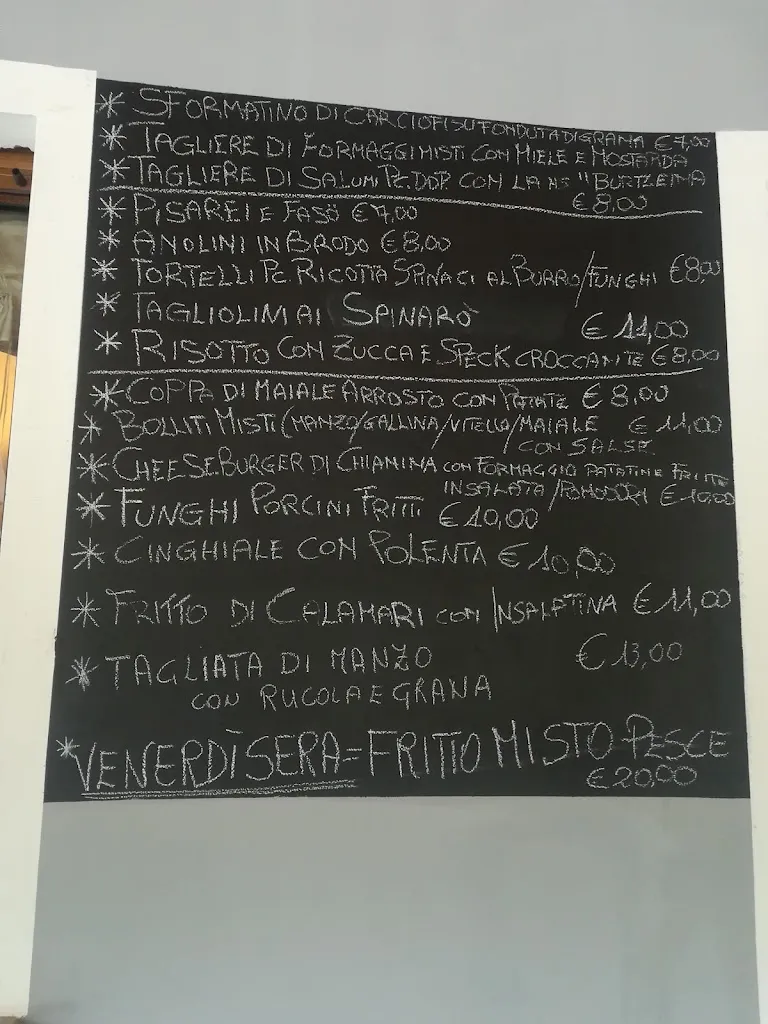 * SFORMATINO DI CARCIOFI SU FONDUTA DI GRANA €7,00
* TAGLIERE DI FORMAGGI MISTI CON MIELE E MOSTARDA
* TAGLIERE DI SALUMI PC.DOP CON LA NS "BURTLEINA
€8,00
* PISAREI E FASÖ €7,00
* ANOLINI IN BRODO €8,00
* TORTELLI PC RICOTTA SPINACI AL BURRO/FUNGHI €8,00
* TAGLIOLINI AI SPINARÒ
€11,00
* RISOTTO CON ZUCCA E SPECK CROCCANTE €8,00
* COPPA DI MAIALE ARROSTO CON PATATE €8,00
* BOLLITI MISTI (MANZO/GALLINA/VITELLO/MAIALE €11,00
CON SALSE
* CHEESEBURGER DI CHIANINA CON FORMAGGIO PATATINE FRITTE
INSALATA/POMODORI €10,00
* FUNGHI PORCINI FRITTI €10,00
* CINGHIALE CON POLENTA €10,00
* FRITTO DI CALAMARI CON INSALATINA €11,00
* TAGLIATA DI MANZO €13,00
CON RUCOLA E GRANA
* VENERDÌ SERA=FRITTO MISTO PESCE
€20,00